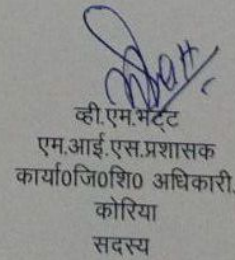 व्ही.एम.भट्ट
एम.आई.एस.प्रशासक
कार्या0जि0शि0 अधिकारी.
कोरिया
सदस्य